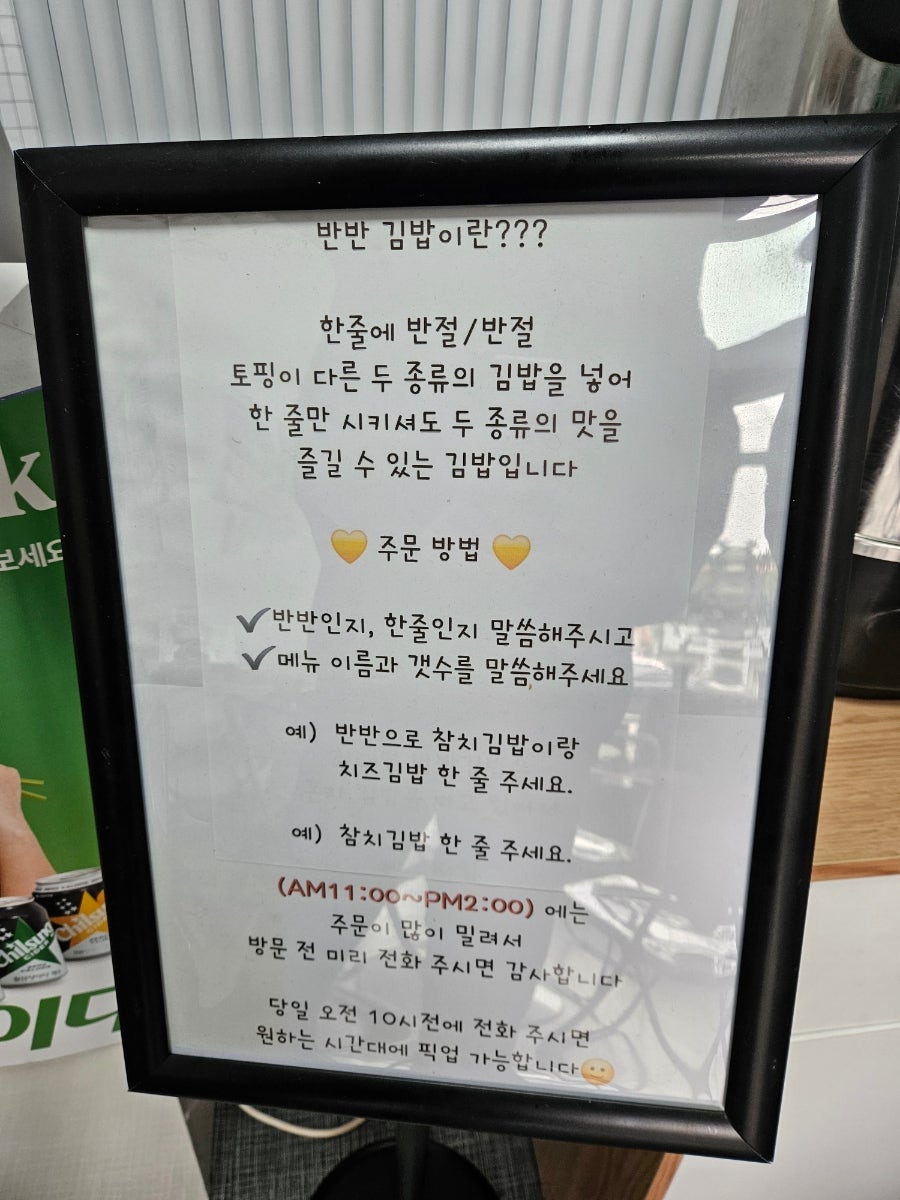 반반 김밥이란???
한줄에 반절/반절
토핑이 다른 두 종류의 김밥을 넣어
한 줄만 시키셔도 두 종류의 맛을
즐길 수 있는 김밥입니다
💛 주문 방법 💛
✔반반인지, 한줄인지 말씀해주시고
✔메뉴 이름과 갯수를 말씀해주세요
예) 반반으로 참치김밥이랑
치즈김밥 한 줄 주세요.
예) 참치김밥 한 줄 주세요.
(AM11:00~PM2:00) 에는
주문이 많이 밀려서
방문 전 미리 전화 주시면 감사합니다
당일 오전 10시전에 전화 주시면
원하는 시간대에 픽업 가능합니다🙂
k
보세요
Chilsung
Chilsung
이다